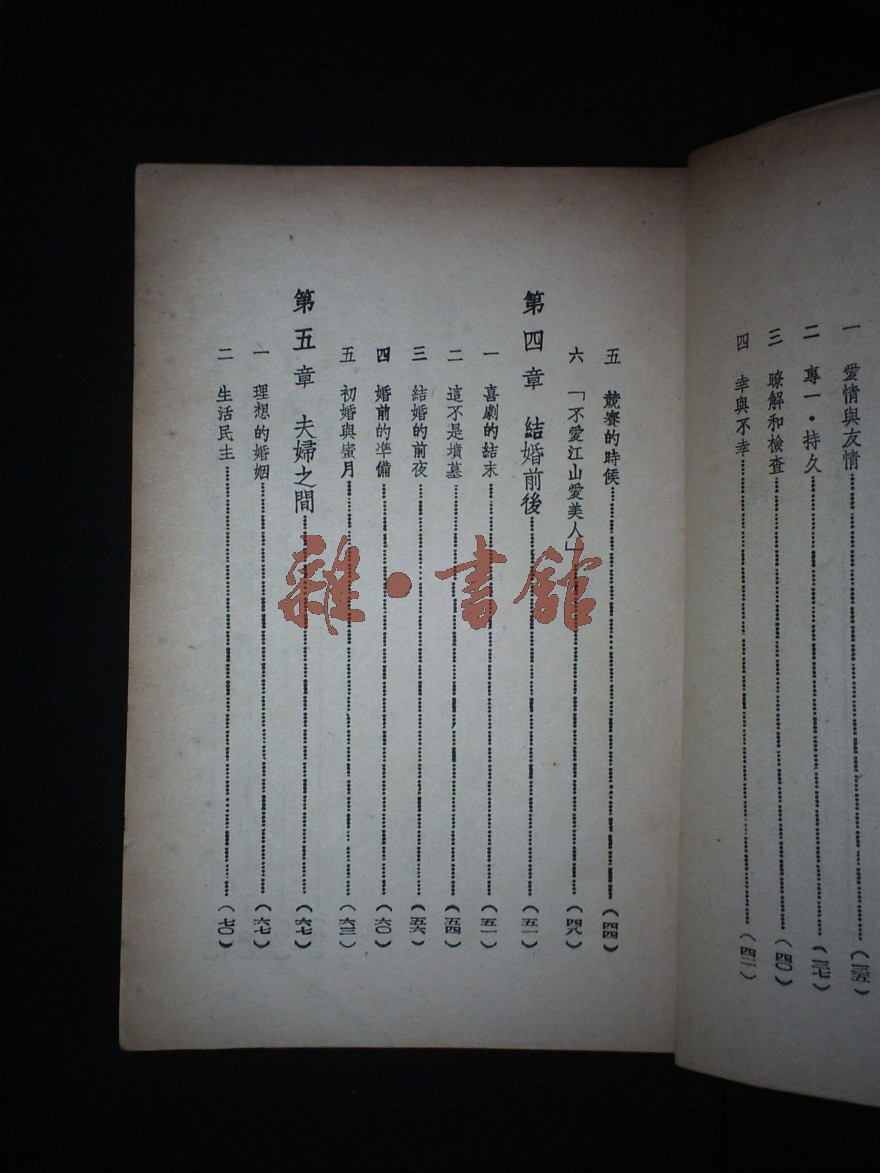 一　愛情與友情……（三五）
二　專一・持久……（三七）
三　瞭解和檢查……（四〇）
四　幸與不幸……（四二）
五　競賽的時候……（四四）
六　「不愛江山愛美人」……（四八）
第四章　結婚前後……（五一）
一　喜劇的結末……（五一）
二　這不是墳墓……（五四）
三　結婚的前夜……（五六）
四　婚前的準備……（六〇）
五　初婚與蜜月……（六三）
第五章　夫婦之間……（六七）
一　理想的婚姻……（六七）
二　生活民主……（七〇）
雜・書館